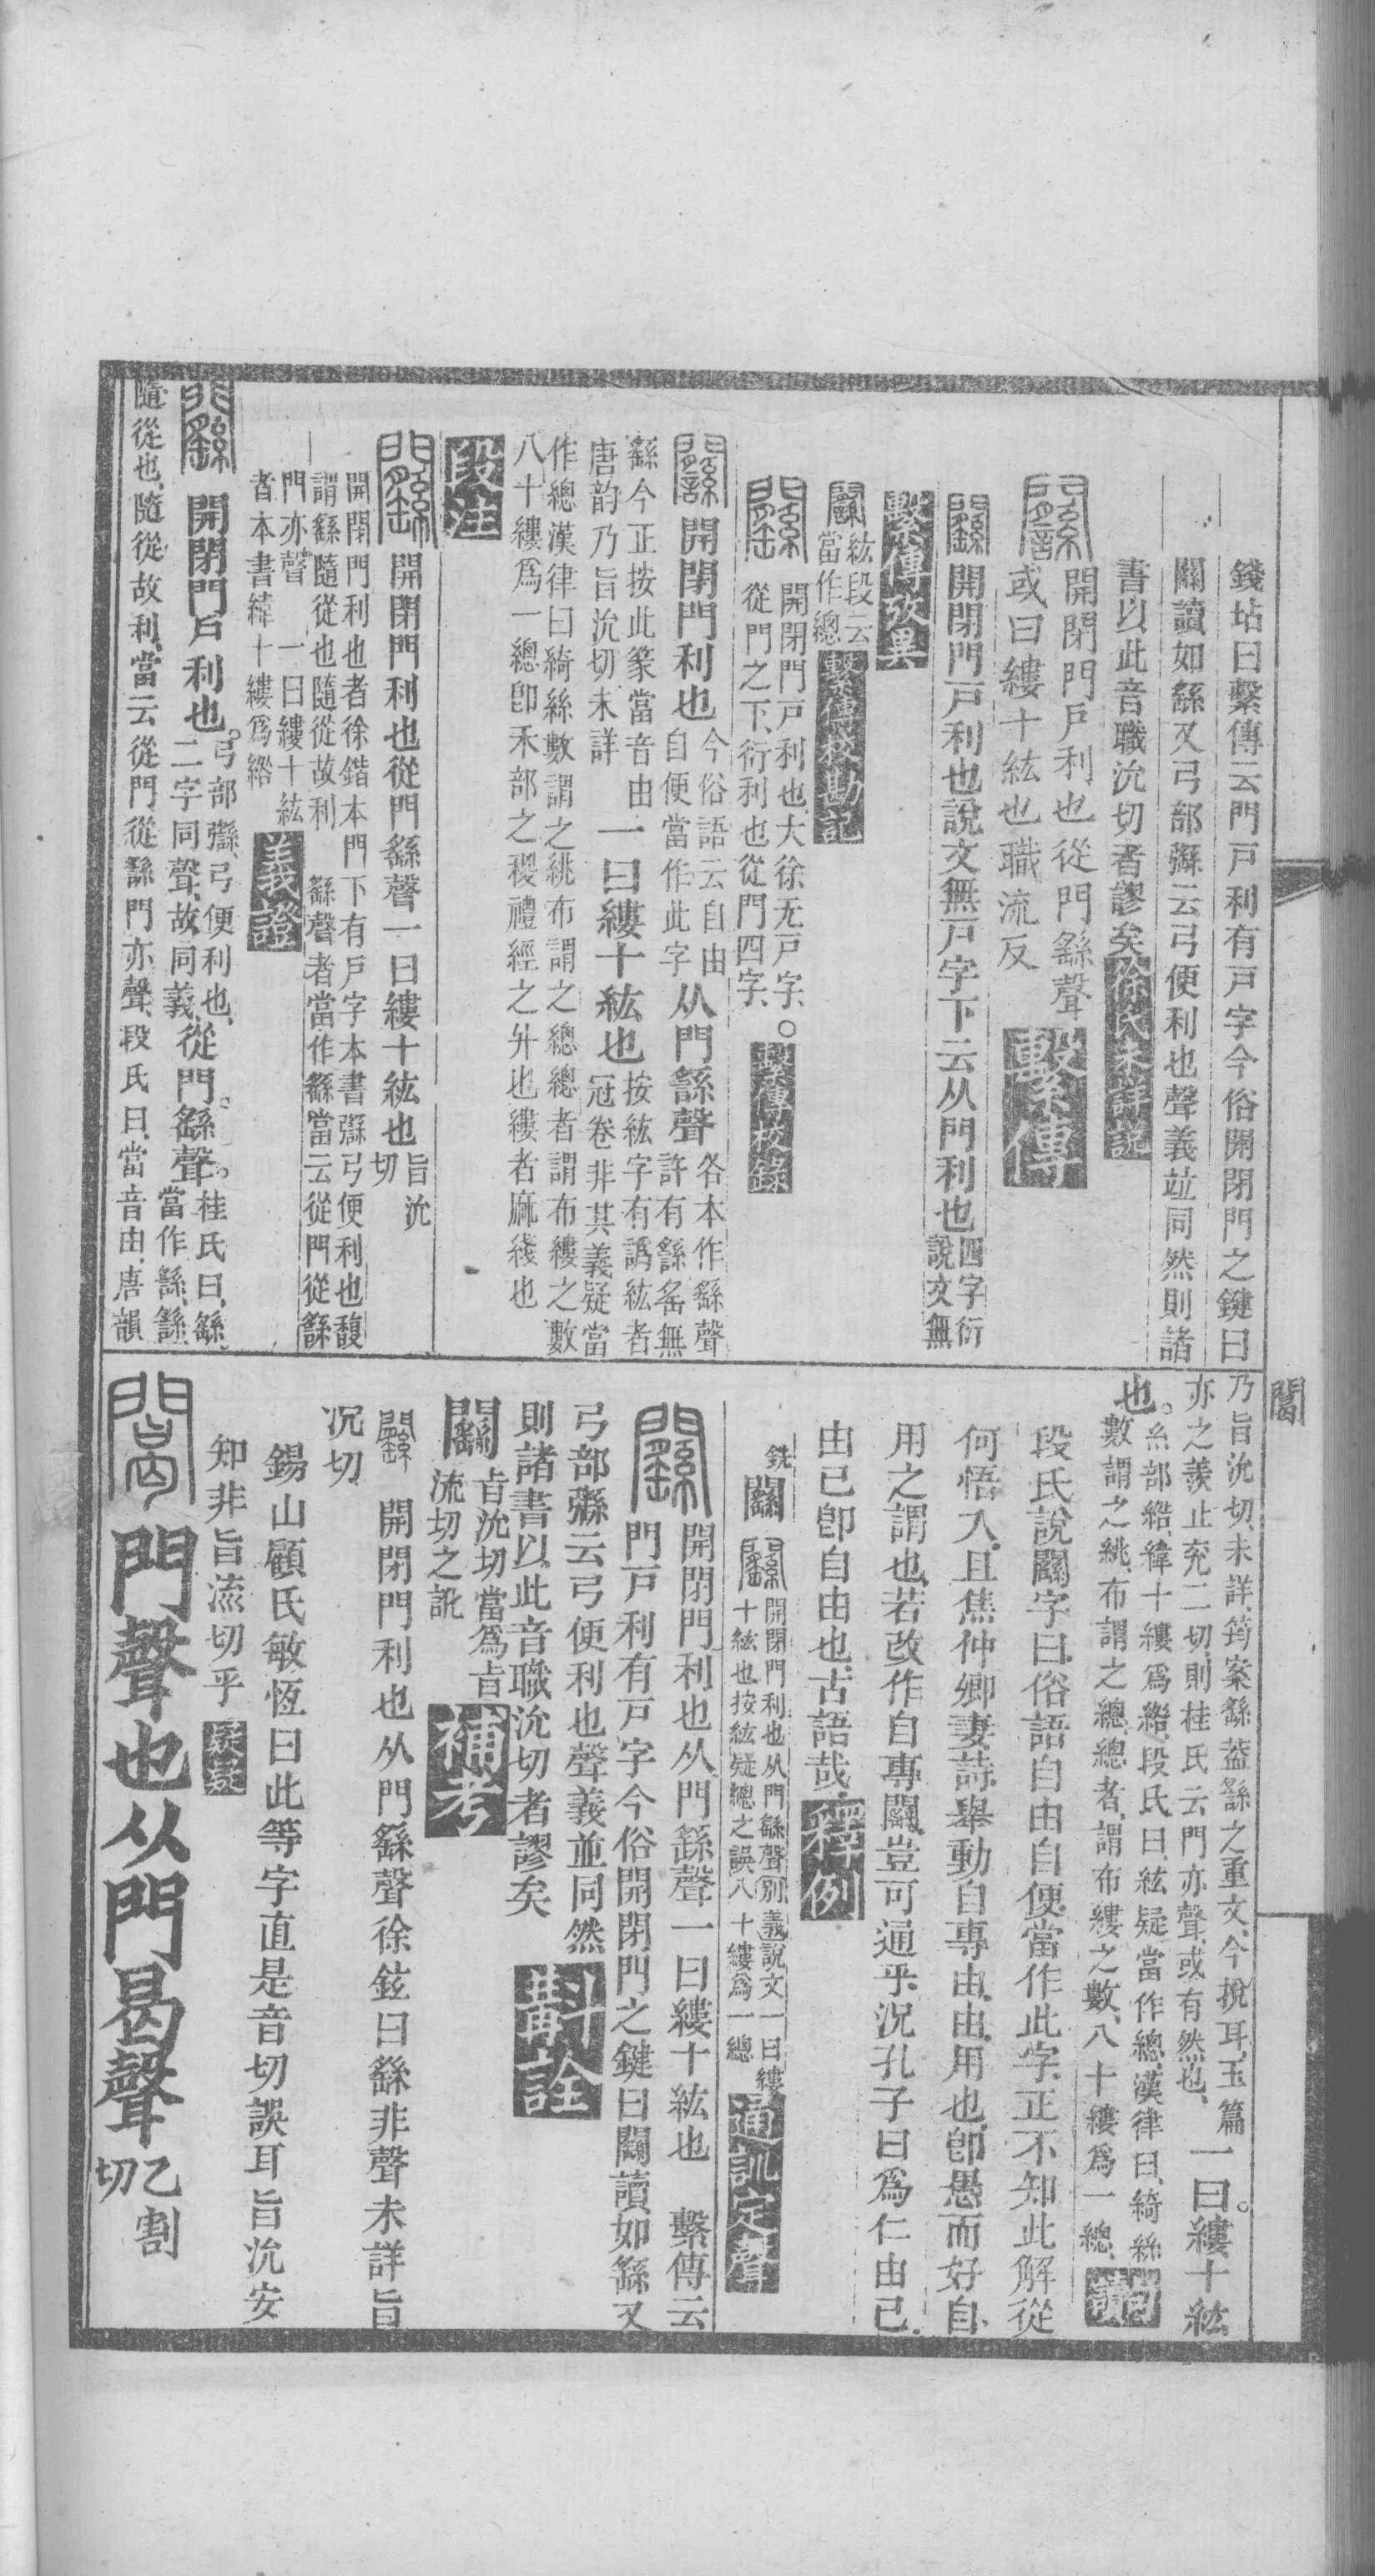 錢坫曰繫傳云門戸利有戸字今俗開閉門之鍵曰
闢讀如繇又弓部㢣云弓便利也聲義竝同然則諸
書以此音職沇切者謬矣徐氏未詳說
開閉門戸利也從門繇聲
或曰縷十紘也職流反 繫傳
開閉門戸利也說文無戸字下云从門利也四字衍
說文無
繫傳攷異
紘段云
當作總 繫傳校勘記
開閉門戸利也大徐无戸字○
從門之下衍利也從門四字 繫傳校錄
開閉門利也今俗語云自由
自便當作此字从門繇聲各本作繇聲
許有繇䍃無
繇今正按此篆當音由
唐韵乃旨沇切未詳一曰縷十紘也按紘字有譌紘者
冠卷非其義疑當
作總漢律曰綺絲數謂之絩布謂之總總者謂布縷之數
八十縷爲一總卽禾部之稯禮經之升也縷者麻綫也
段注
開閉門利也從門繇聲一曰縷十紘也旨沇
切
開閉門利也者徐鍇本門下有戸字本書㢣弓便利也馥
謂繇隨從也隨從故利 繇聲者當作繇當云從門從繇
門亦聲 一曰縷十紘
者本書緯十縷爲綹 義證
開閉門戸利也。弓部㢣弓便利也、
二字同聲、故同義、從門。繇聲。桂氏曰、繇、
當作繇、繇、
隨從也、隨從故利、當云從門從繇門亦聲、段氏曰、當音由、唐韻
闔
乃旨沇切、未詳、筠案繇葢繇之重文、今挩耳、玉篇
亦之羨止兗二切、則桂氏云門亦聲、或有然也、一曰。縷十紘
也。糸部綹、緯十縷爲綹、段氏曰、紘疑當作總、漢律曰、綺絲
數謂之絩、布謂之總、總者、謂布縷之數、八十縷爲一總、 句讀
段氏說闢字曰、俗語自由自便、當作此字、正不知此解從
何悟入、且焦仲卿妻詩、舉動自專由、由、用也、卽愚而好自
用之謂也、若改作自專闢、豈可通乎、況孔子曰爲仁由己、
由己卽自由也、古語哉、 釋例
銑
開閉門利也从門繇聲別義說文一曰縷
十紘也按紘疑總之誤八十縷爲一總 通訓定聲
開閉門利也从門繇聲一曰縷十紘也 繫傳云
門戸利有戸字今俗開閉門之鍵曰闢讀如繇又
弓部㢣云弓便利也聲義並同然
則諸書以此音職沇切者謬矣 斠詮
旨沇切當爲旨
流切之訛 補考
開閉門利也从門繇聲徐鉉曰繇非聲未詳旨
沇切
錫山顧氏敏恆曰此等字直是音切誤耳旨沇安
知非旨流切乎 疑疑
門聲也从門曷聲乙割
切